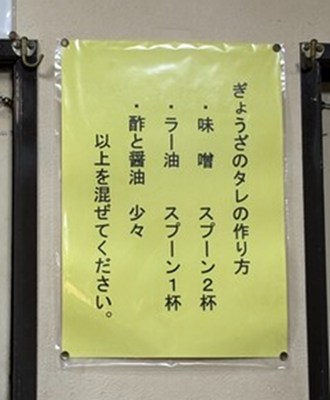 ぎょうざのタレの作り方
・味 噌 スプーン2杯
・ラー油 スプーン1杯
・酢と醤油 少々
以上を混ぜてください。